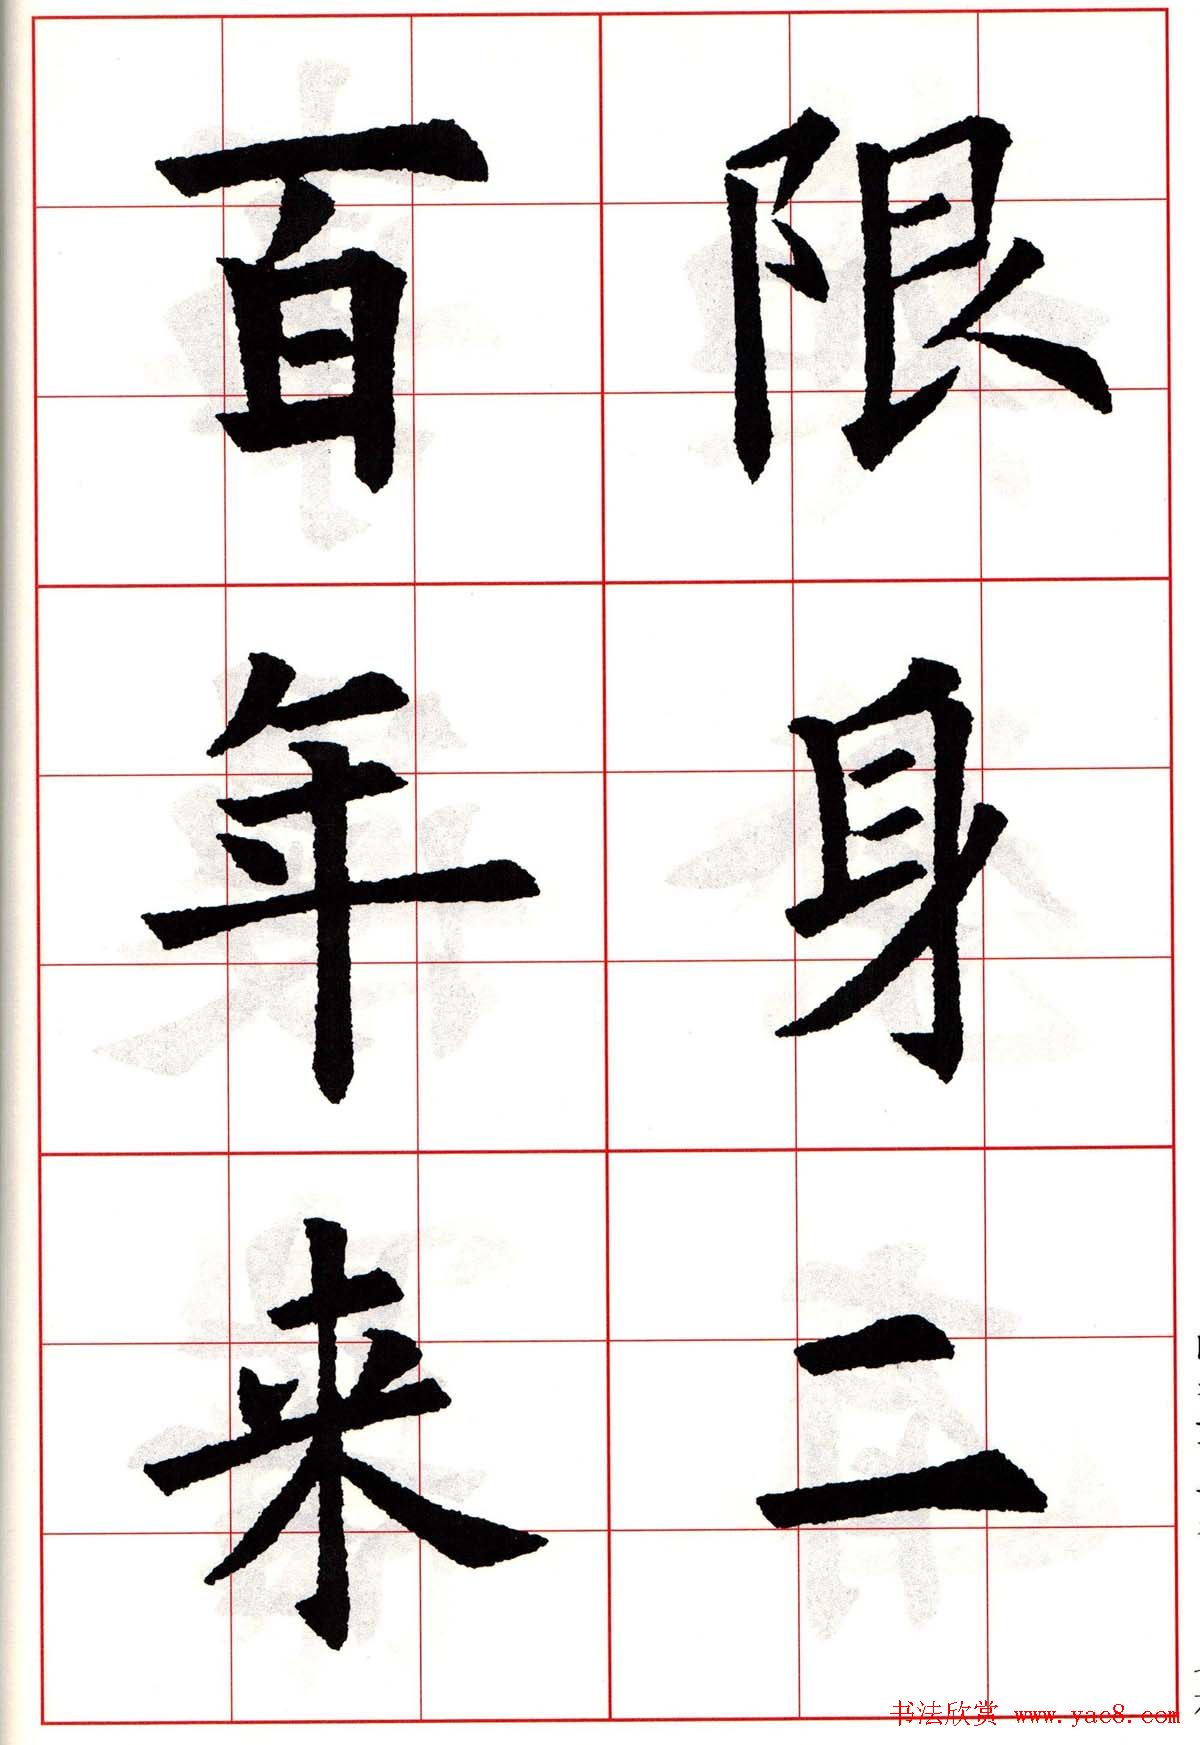 限身二
百年来
书法欣赏 www.yac8.com